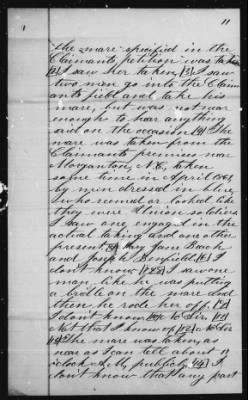 11
the mare specified in the
Claimants petition was taken
[2] I saw her taken, [3] I saw
two men go into the Claim
ants field and take his
mare, but was not near
enough to hear anything
said on the occasion [4] The
mare was taken from the
Claimants premises near
Morganton, N.C., taken
some time in April 1865
by men dressed in blue,
who seemed or looked like
they were Union soldiers
I saw one engaged in the
actual taking and one other
present [5] Mary Jane Beach
and Joseph Benfield [6] I
don't know [7 & 8] I saw one
man like he was putting
a bridle on the mare and
then he rode her off. [9]
I don't know [10] No Sir. [11]
Not that I know of [12] No Sir
[13] The mare was taken as
near as I can tell about
o'clock A.M., publicly [14] I
don't know that any part